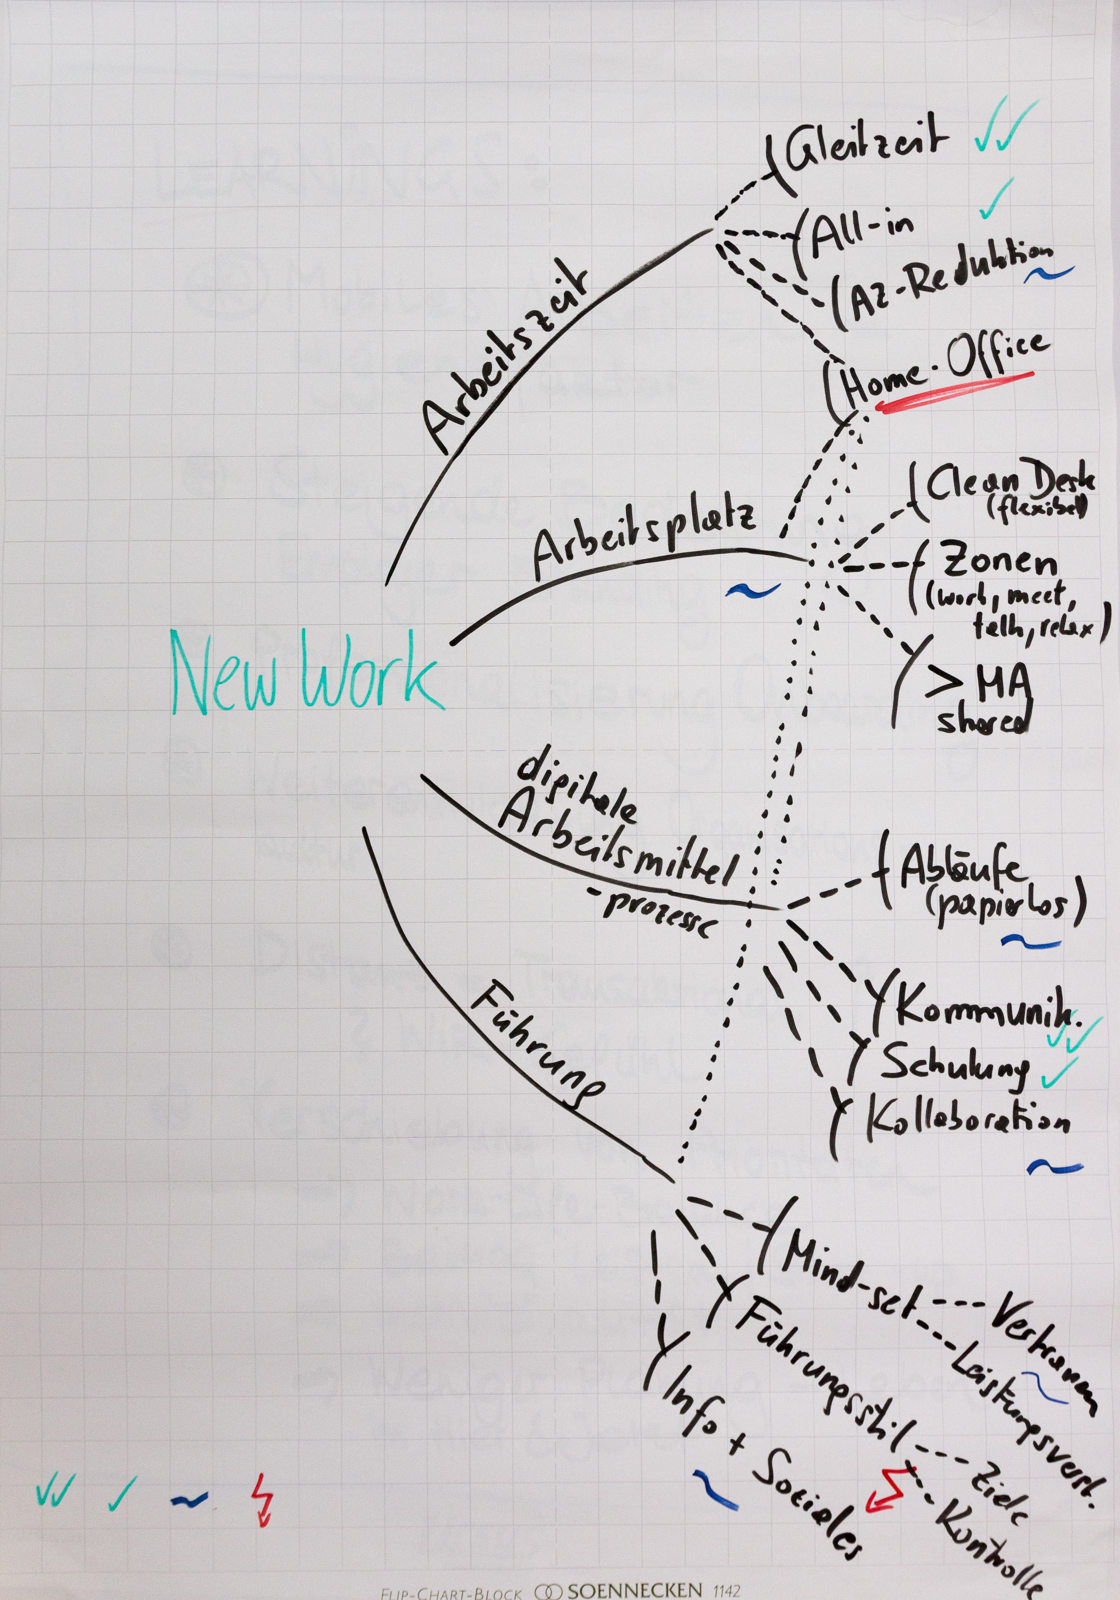 Gleitzeit
All-in
AZ-Reduktion
Home-Office
Arbeitszeit
Clean Desk
(flexibel)
Arbeitsplatz
Zonen
(work, meet,
talk, relax)
New Work
> MA
shared
digitale
Arbeitsmittel
-prozesse
Abläufe
(papierlos)
Kommunik.
Schulung
Kollaboration
Führung
Mind-set
Vertrauen
Leistungsverst.
Führungsstil
Ziele
Kontrolle
Info + Soziales
FLIP-CHART-BLOCK SOENNECKEN 1142